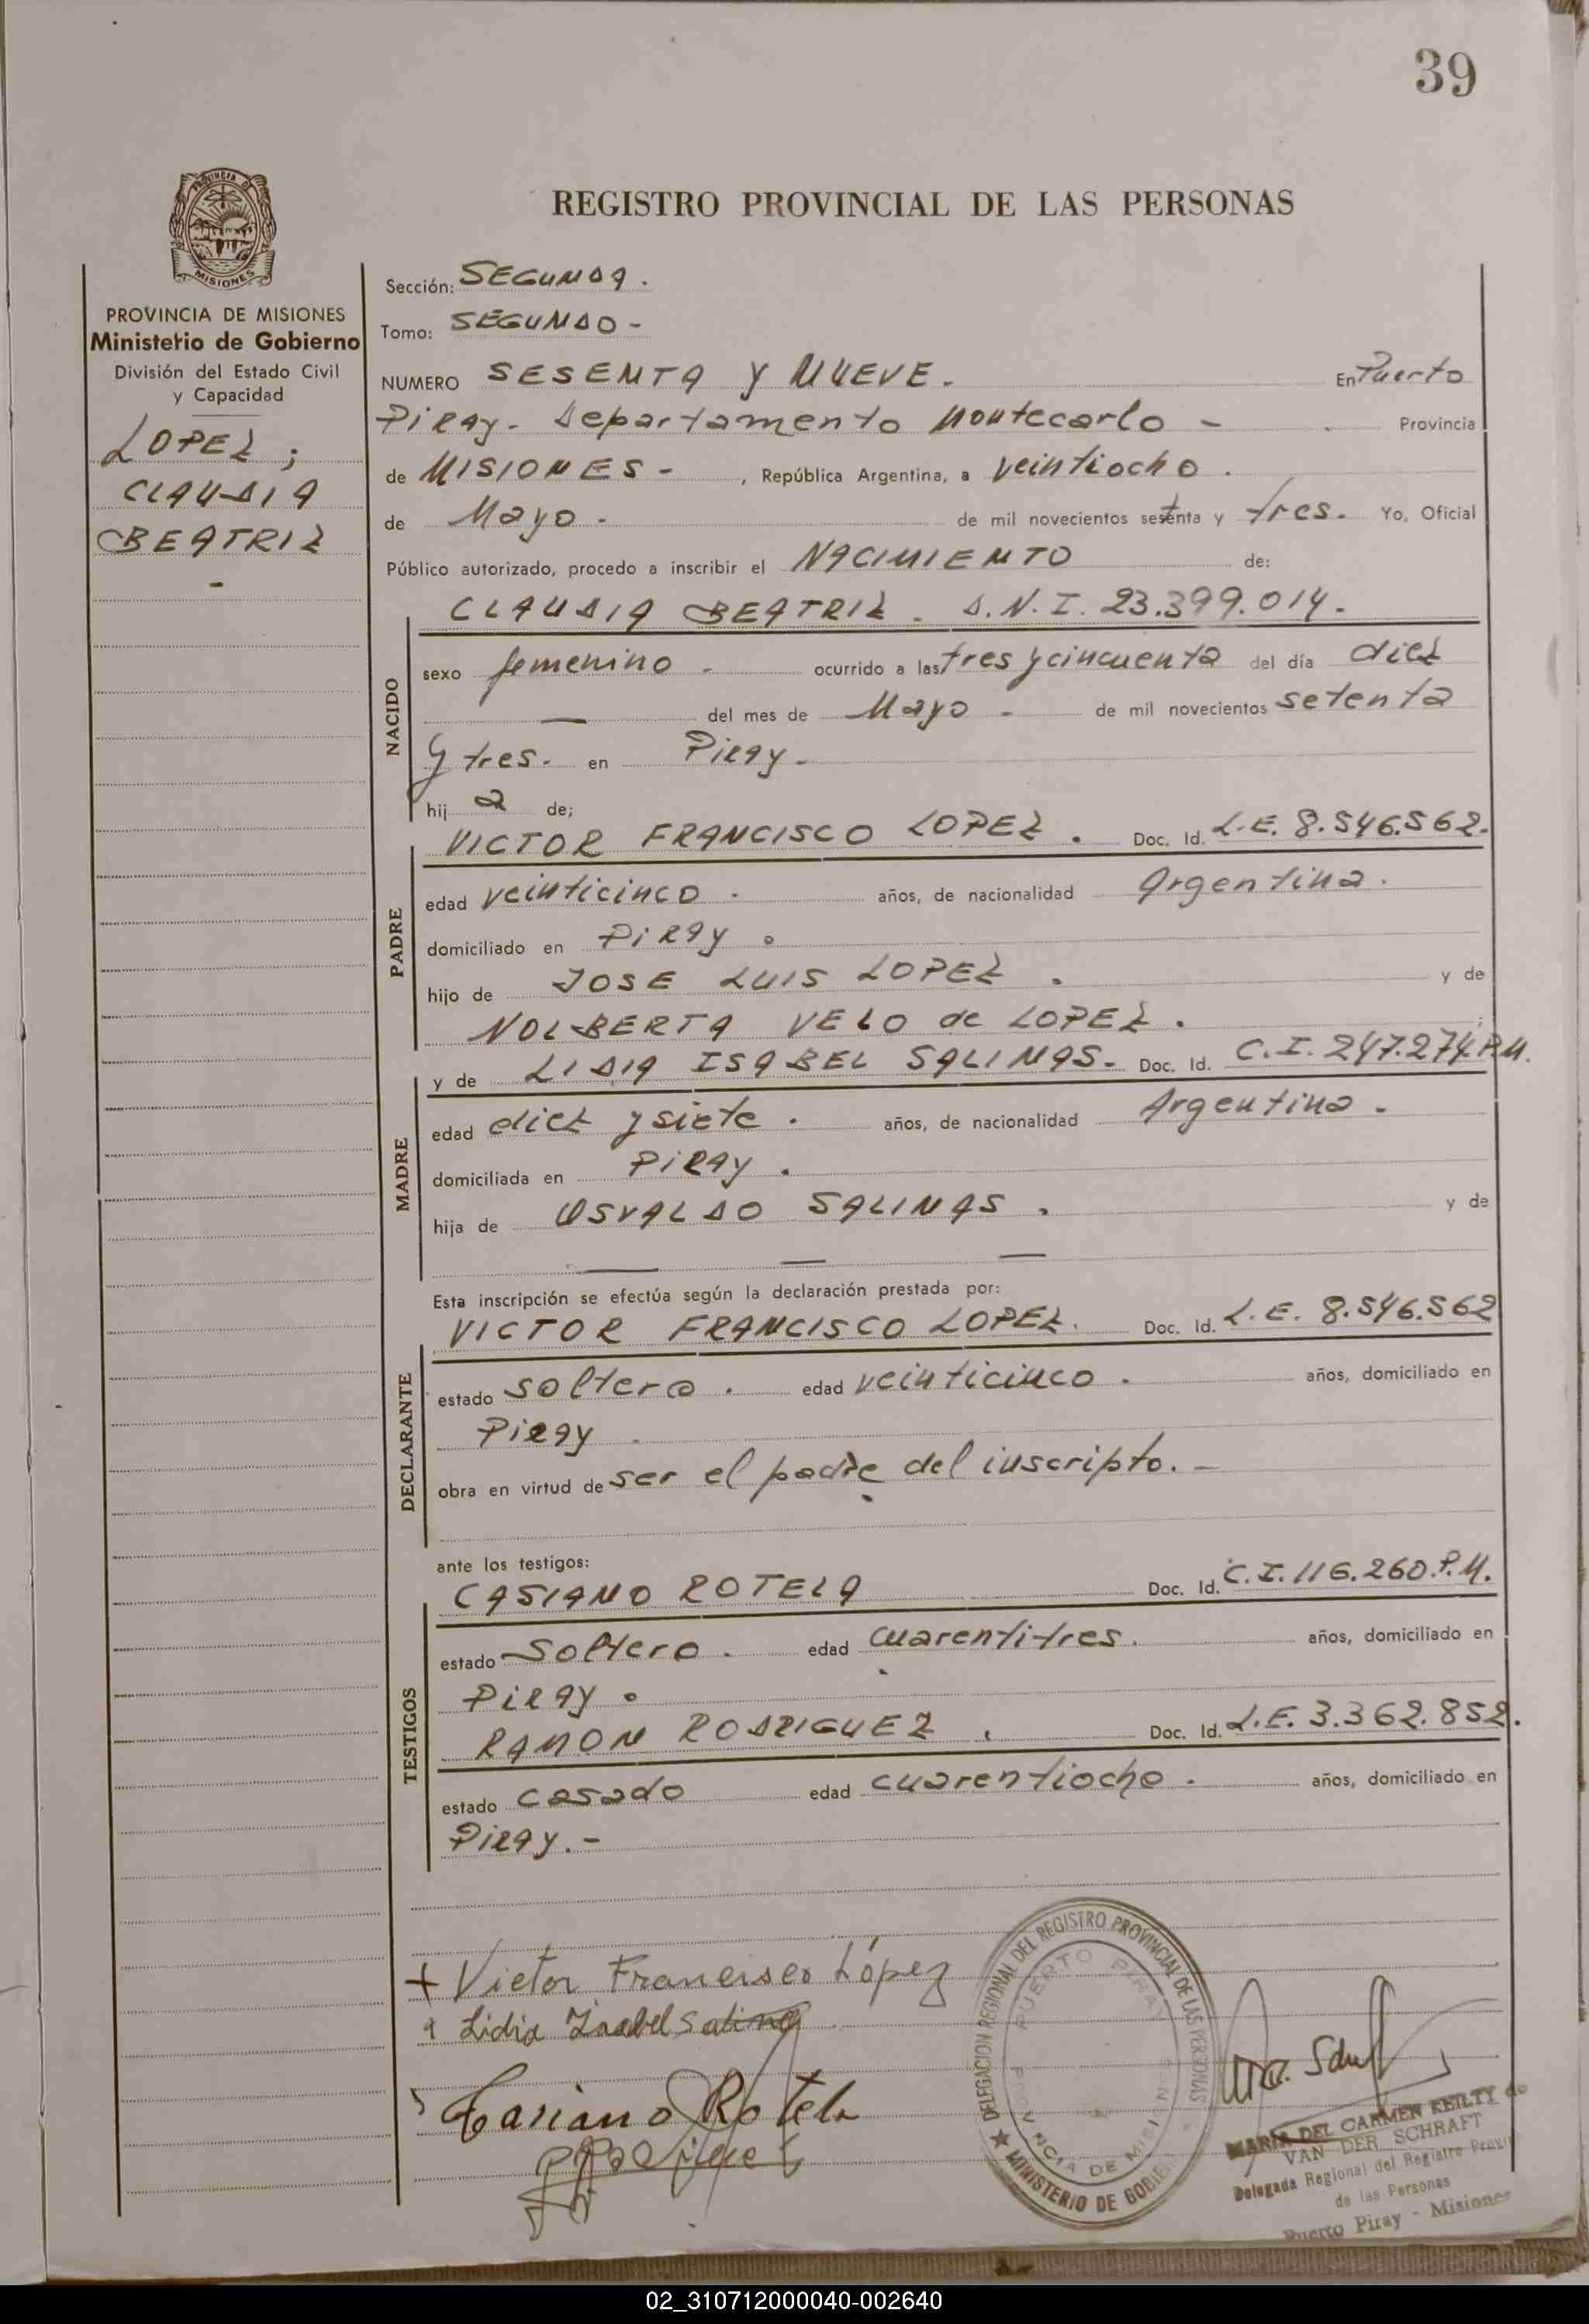 39
REGISTRO PROVINCIAL DE LAS PERSONAS
PROVINCIA DE MISIONES
Ministerio de Gobierno
División del Estado Civil
y Capacidad
LOPEZ;
CLAUDIA
BEATRIZ
-
Sección: SEGUNDA.
Tomo: SEGUNDO-
NUMERO SESENTA Y NUEVE. En Puerto
Piray- Departamento Montecarlo - Provincia
de MISIONES- , República Argentina, a veintiocho.
de Mayo- de mil novecientos setenta y tres. Yo, Oficial
Público autorizado, procedo a inscribir el NACIMIENTO de:
CLAUDIA BEATRIZ. D.N.I. 23.399.014.
NACIDO
sexo femenino- ocurrido a las tres y cincuenta del día diez
— del mes de Mayo- de mil novecientos setenta
y tres. en Piray-
hij a de;
VICTOR FRANCISCO LOPEZ. Doc. Id. L.E. 8.546.562.
PADRE
edad veinticinco. años, de nacionalidad Argentina.
domiciliado en Piray.
hijo de JOSE LUIS LOPEZ. y de
NOLBERTA VELO de LOPEZ.
y de LIDIA ISABEL SALINAS- Doc. Id. C.I. 247.274.P.M.
MADRE
edad diez y siete. años, de nacionalidad Argentina.
domiciliada en Piray.
hija de OSVALDO SALINAS. y de
— — —
Esta inscripción se efectúa según la declaración prestada por:
VICTOR FRANCISCO LOPEZ. Doc. Id. L.E. 8.546.562
DECLARANTE
estado soltero. edad veinticinco. años, domiciliado en
Piray
obra en virtud de ser el padre del inscripto.-
ante los testigos:
CASIANO ROTELA Doc. Id. C.I. 116.260.P.M.
TESTIGOS
estado Soltero. edad cuarentitres. años, domiciliado en
Piray.
RAMON RODRIGUEZ. Doc. Id. L.E. 3.362.852.
estado casado edad cuarentiocho. años, domiciliado en
Piray.-
+ Victor Francisco López
Lidia Isabel Salinas
Casiano Rotela
DELEGACION REGIONAL DEL REGISTRO PROVINCIAL DE LAS PERSONAS
★ MINISTERIO DE GOBIE
PUERTO PIRAY
PROVINCIA DE MISIONES
MARIA DEL CARMEN KEILTY de
VAN DER SCHRAFT
Delegada Regional del Registro Provin
de las Personas
Puerto Piray - Misiones
02_310712000040-002640